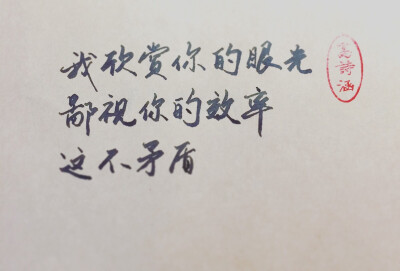 我欣赏你的眼光
鄙視你的效率
这不矛盾
詩涵